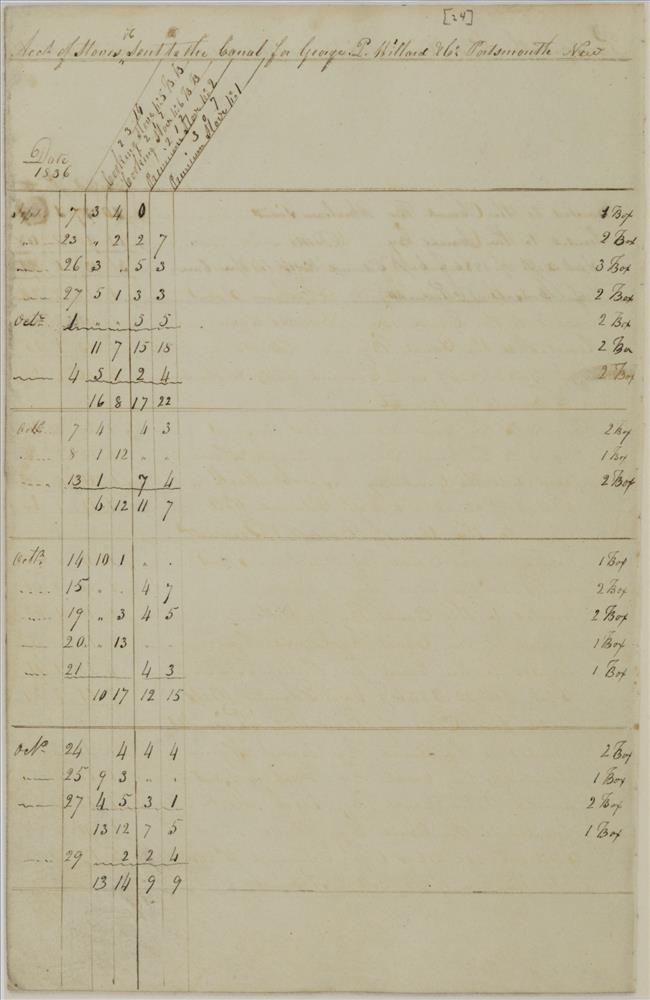 [24]
Acct of Stoves, Sent to the Canal for George P. Willard & Co. Portsmouth New
16
1 2 3 16
Cooking Stove No 5 B B
1 2 4
Cooking Stove No 6 B B
2 1 2
Premium Stove No 2
3 0 7
Premium Stove No 1
Date
1836
Sept. 7 3 4 0 1 Box
" 23 " 2 2 7 2 Box
26 3 " 5 3 3 Box
27 5 1 3 3 2 Box
Octr 1 " " 5 5 2 Box
11 7 15 18 2 Box
4 5 1 2 4 2 Box
16 8 17 22
Octr 7 4 4 3 2 Box
8 1 12 " " 1 Box
13 1 7 4 2 Box
6 12 11 7
Octr. 14 10 1 " " 1 Box
15 " " 4 7 2 Box
19 " 3 4 5 2 Box
20. " 13 " " 1 Box
21 4 3 1 Box
10 17 12 15
Octr. 24 4 4 4 2 Box
25 9 3 " " 1 Box
27 4 5 3 1 2 Box
13 12 7 5 1 Box
29 2 2 4
13 14 9 9